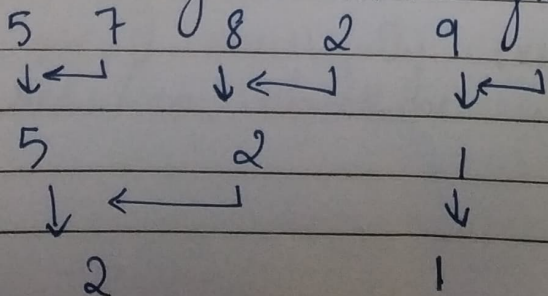 5 7 8 2 9
5 2 1
2 1